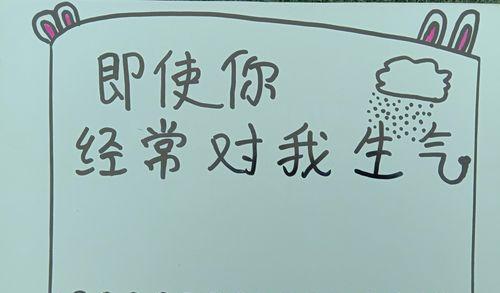 即使你
经常对我生气